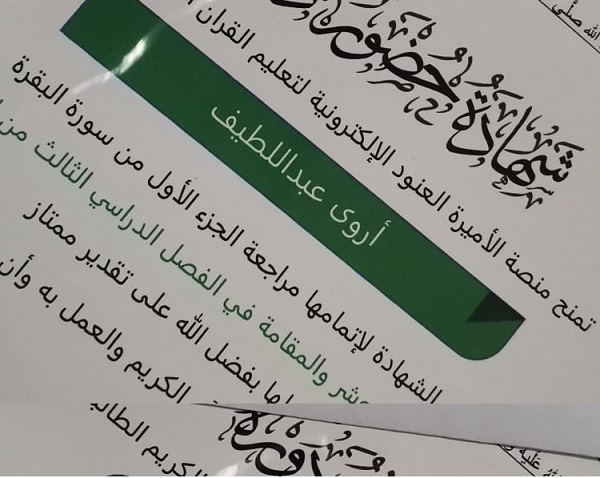 الله صلى
شهادة حضور
تمنح منصة الأميرة العنود الإلكترونية لتعليم القرآن
أروى عبداللطيف
الشهادة لإتمامها مراجعة الجزء الأول من سورة البقرة
عشر والمقامة في الفصل الدراسي الثالث من
بفضل الله على تقدير ممتاز
الكريم والعمل به وأن
الله عليه
الكريم الطالب